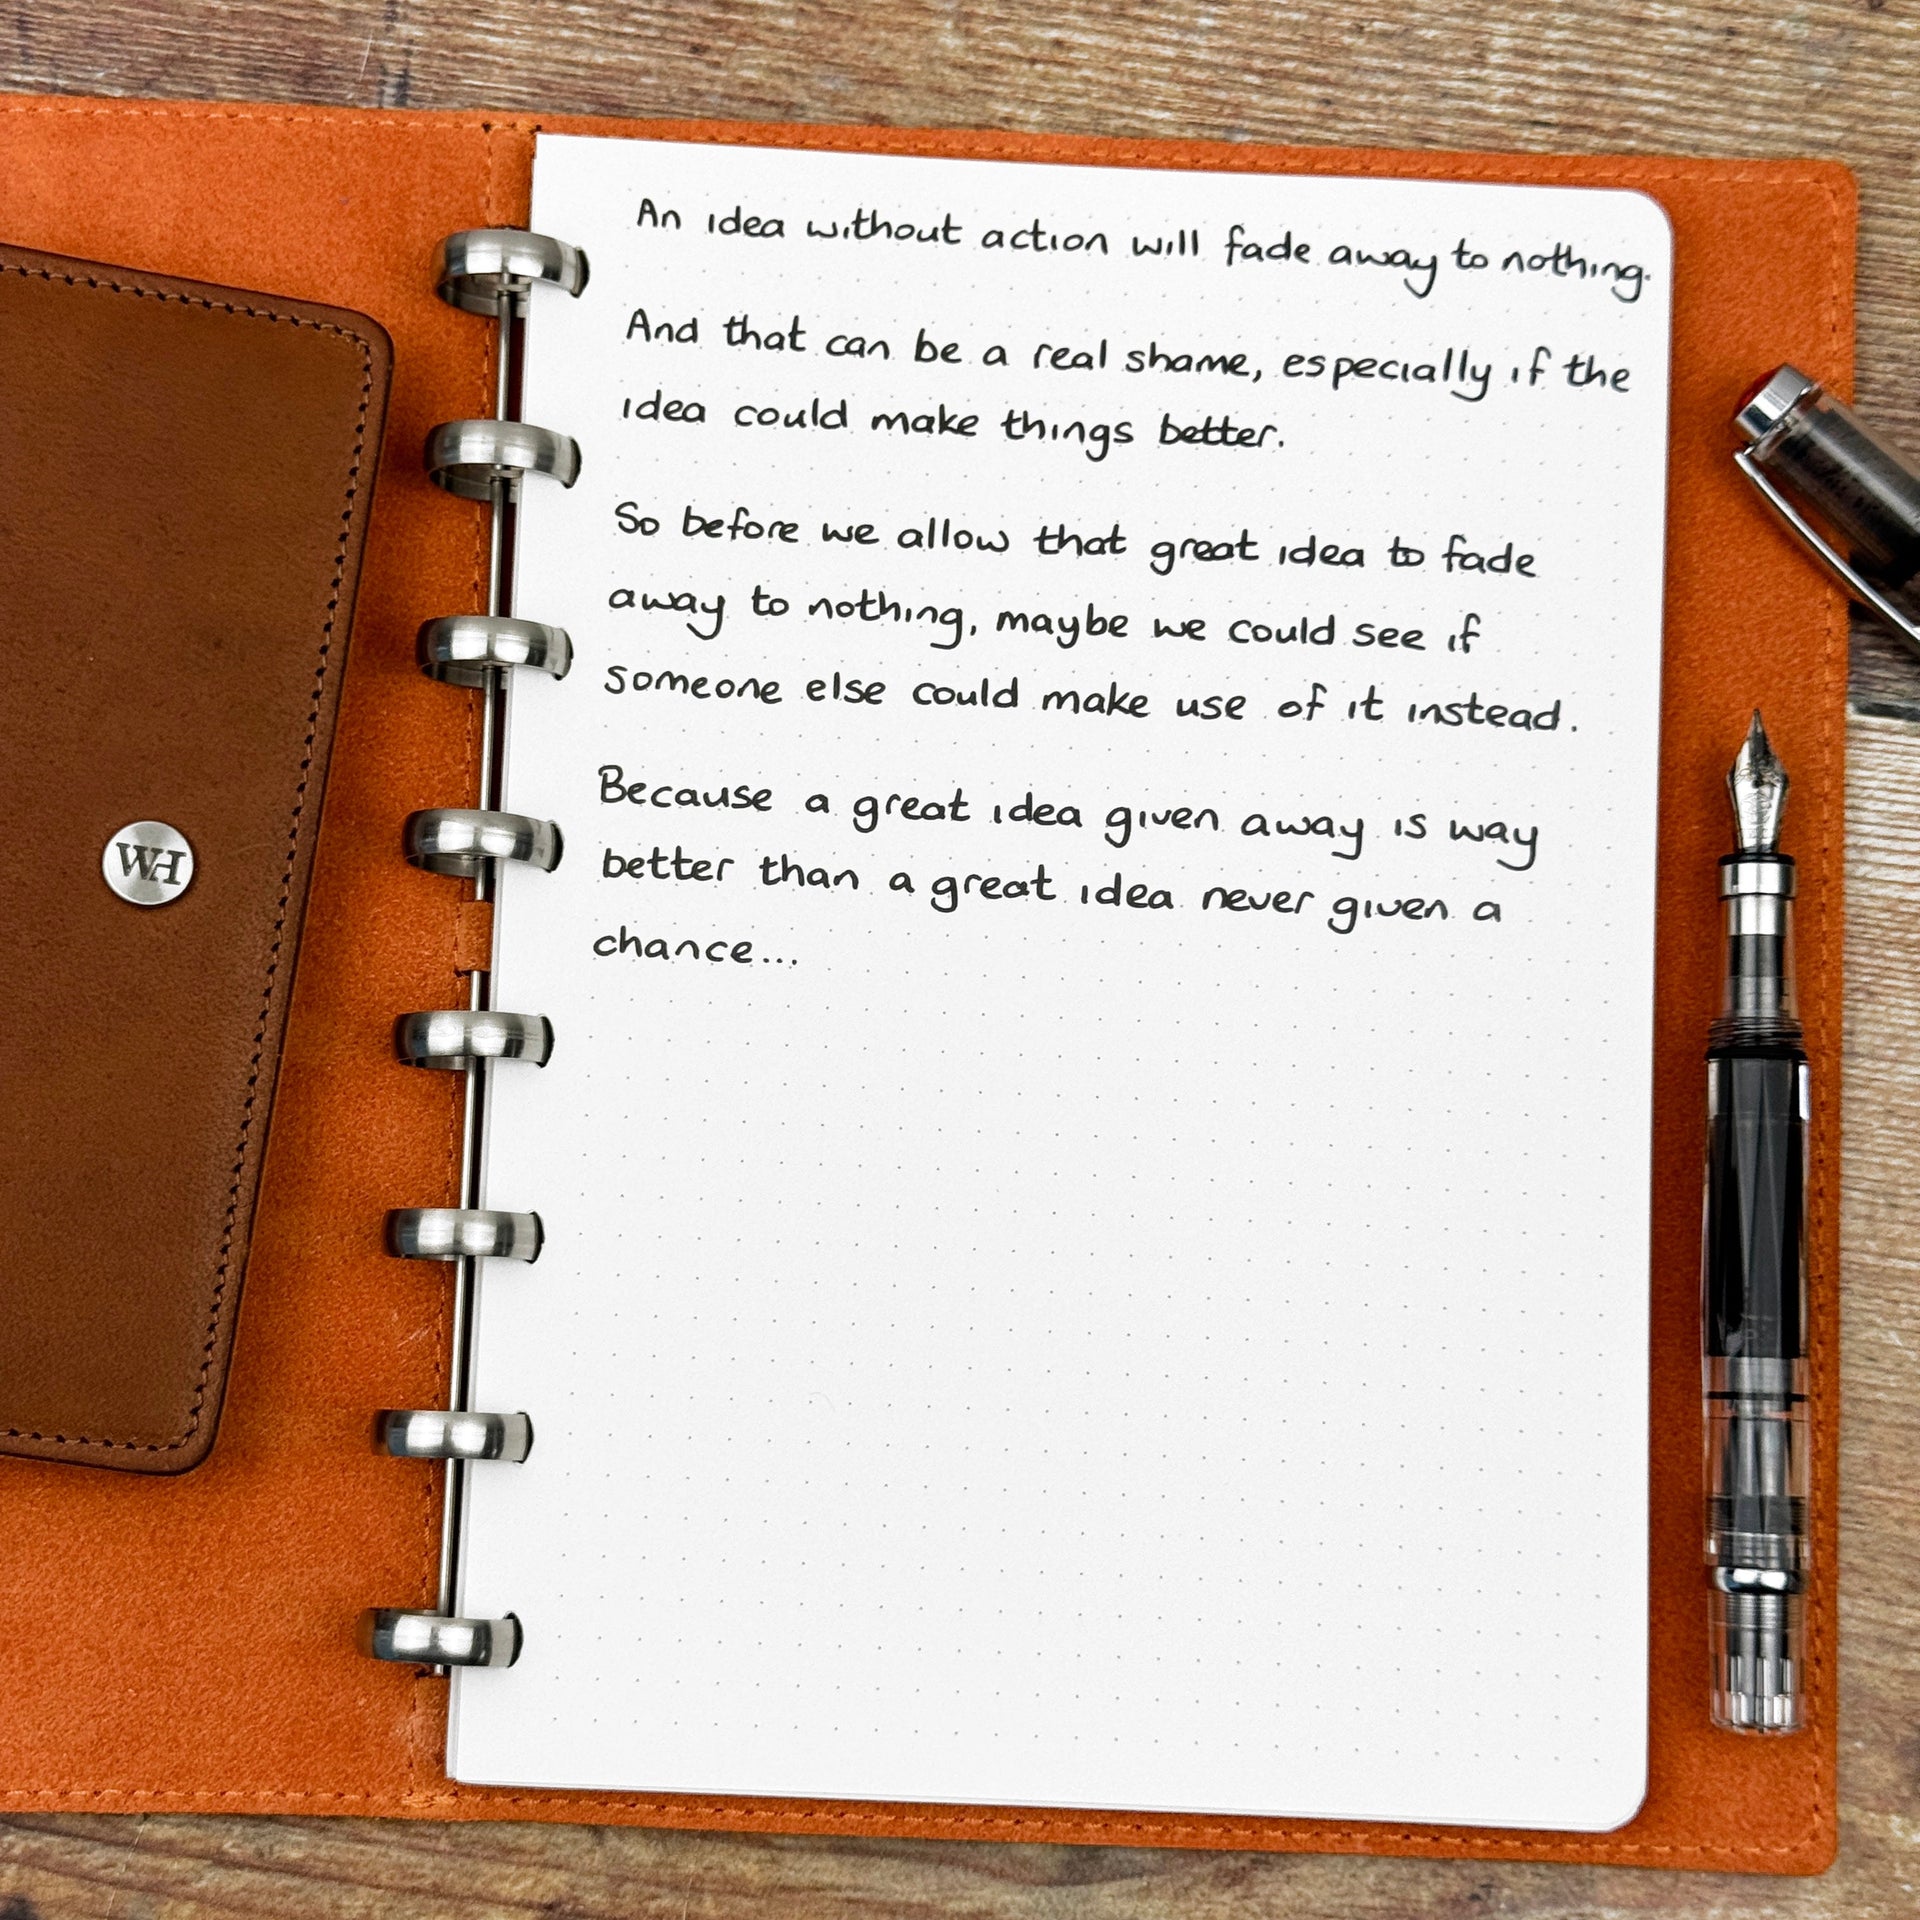 An idea without action will fade away to nothing.
And that can be a real shame, especially if the
idea could make things better.
So before we allow that great idea to fade
away to nothing, maybe we could see if
someone else could make use of it instead.
Because a great idea given away is way
better than a great idea never given a
chance...
WH